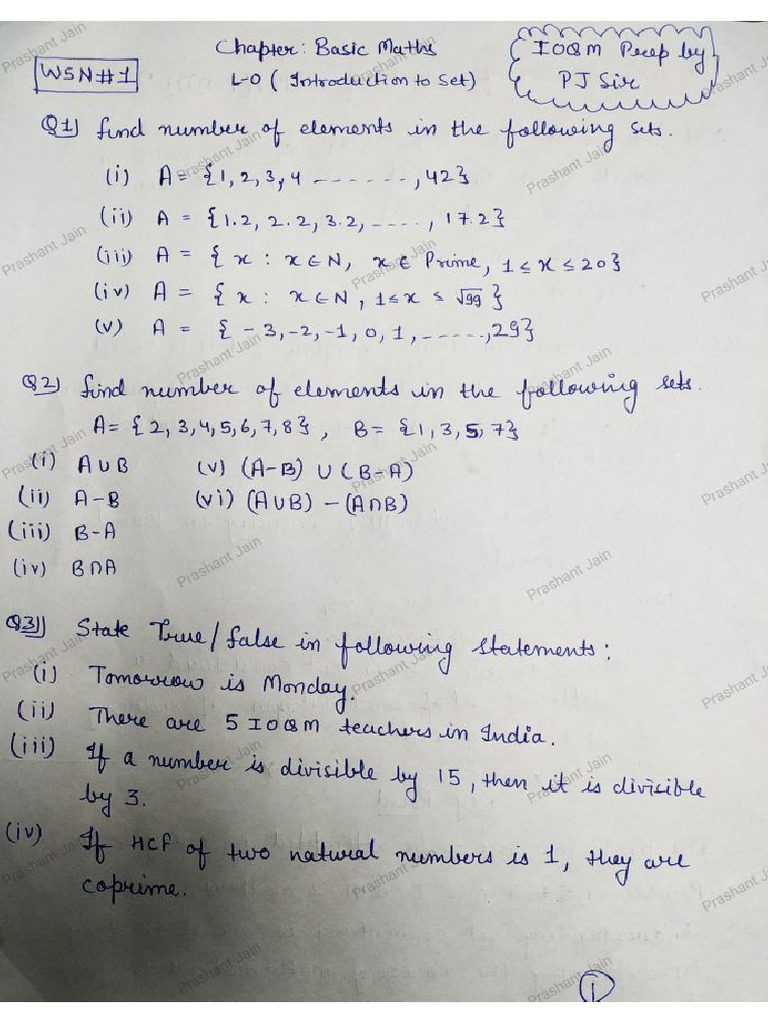 WSN#1
Chapter: Basic Maths
L-0 ( Introduction to Set)
IOQM Precp by
PJ Sir
Q1) find number of elements in the following sets.
(i) A = {1, 2, 3, 4 -------, 42}
(ii) A = {1.2, 2.2, 3.2, ----, 17.2}
(iii) A = { x : x ∈ N, x ∈ Prime, 1 ≤ x ≤ 20}
(iv) A = { x : x ∈ N, 1 ≤ x ≤ √99 }
(v) A = { -3, -2, -1, 0, 1, ------, 29}
Q2) find number of elements in the following sets.
A = {2, 3, 4, 5, 6, 7, 8}, B = {1, 3, 5, 7}
(i) A∪B (v) (A-B) ∪ (B-A)
(ii) A-B (vi) (A∪B) - (A∩B)
(iii) B-A
(iv) B∩A
Q3) State True/false in following statements:
(i) Tomorrow is Monday.
(ii) There are 5 IOQM teachers in India.
(iii) If a number is divisible by 15, then it is divisible
by 3.
(iv) If HCF of two natural numbers is 1, they are
coprime.
1
Prashant Jain